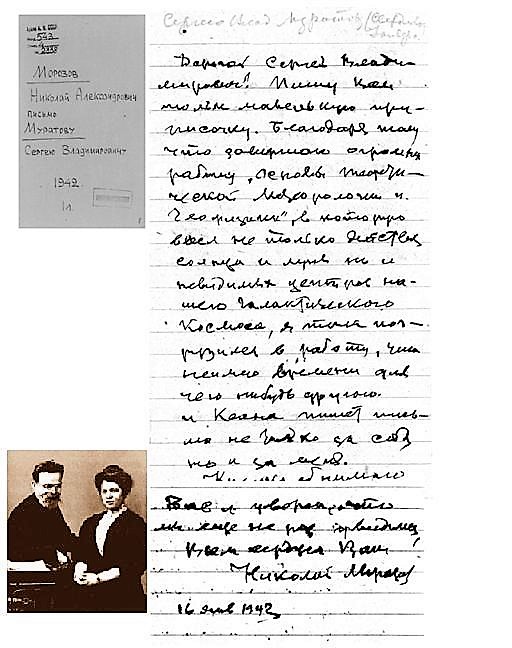 МОРОЗОВ
НИКОЛАЙ АЛЕКСАНДРОВИЧ
ПИСЬМО
МУРАТОВУ
СЕРГЕЮ ВЛАДИМИРОВИЧУ
1942.
1л.
Дорогой Сергей Влади-
мирович! Пишу Вам
только маленькую при-
писочку. Благодаря тому
что завершаю огромную
работу „Основы теорети-
ческой Метеорологии и
Геофизики", в которую
ввел не только действия
солнца и луны но и
невидимых центров на-
шего Галактического
Космоса, я так пог-
рузился в работу, что
не имею времени для
чего нибудь другого.
и Ксана пишет пись-
ма не только за себя
но и за меня.
обнимаю
Вас и уверен, что
мы еще не раз увидимся
Всем сердцем Ваш
Николай Морозов
16 янв 1942